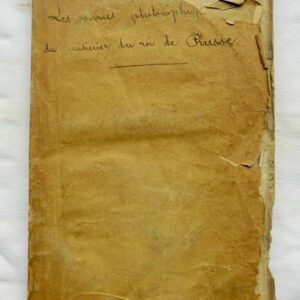 Les œuvres philosophiq
du cuisinier du roi de Prusse